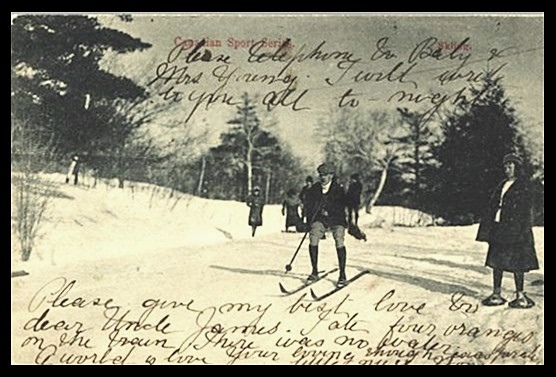 Canadian Sport Series.
Skiing.
Please telephone to Baby &
Mrs Young. I will write
to you all to-night
Please give my best love to
dear Uncle James. I ate four oranges
on the train There was no water
world love your loving